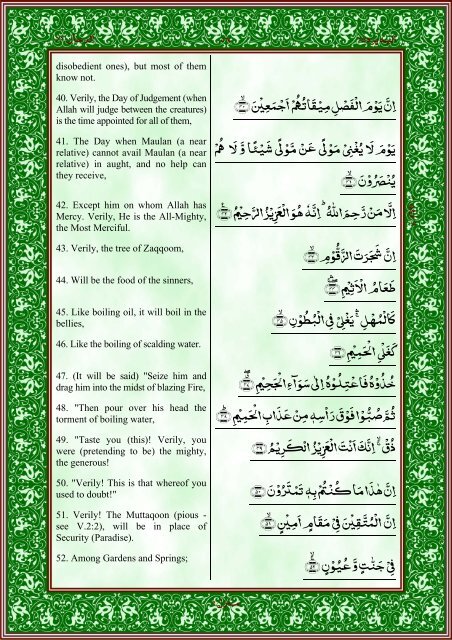 disobedient ones), but most of them
know not.
40. Verily, the Day of Judgement (when
Allah will judge between the creatures)
is the time appointed for all of them,
41. The Day when Maulan (a near
relative) cannot avail Maulan (a near
relative) in aught, and no help can
they receive,
42. Except him on whom Allah has
Mercy. Verily, He is the All-Mighty,
the Most Merciful.
43. Verily, the tree of Zaqqoom,
44. Will be the food of the sinners,
45. Like boiling oil, it will boil in the
bellies,
46. Like the boiling of scalding water.
47. (It will be said) "Seize him and
drag him into the midst of blazing Fire,
48. "Then pour over his head the
torment of boiling water,
49. "Taste you (this)! Verily, you
were (pretending to be) the mighty,
the generous!
50. "Verily! This is that whereof you
used to doubt!"
51. Verily! The Muttaqoon (pious -
see V.2:2), will be in place of
Security (Paradise).
52. Among Gardens and Springs;
اِنَّ يَوْمَ الْفَصْلِ مِيْقَاتُهُمْ اَجْمَعِيْنَ
يَوْمَ لَا يُغْنِيْ مَوْلًى عَنْ مَّوْلًى شَيْـًٔا وَّلَا هُمْ
يُنْصَرُوْنَ
اِلَّا مَنْ رَّحِمَ اللّٰهُ ؕ اِنَّهٗ هُوَ الْعَزِيْزُ الرَّحِيْمُ
اِنَّ شَجَرَتَ الزَّقُّوْمِ
طَعَامُ الْاَثِيْمِ
كَالْمُهْلِ ۛۚ يَغْلِيْ فِي الْبُطُوْنِ
كَغَلْيِ الْحَمِيْمِ
خُذُوْهُ فَاعْتِلُوْهُ اِلٰى سَوَآءِ الْجَحِيْمِ
ثُمَّ صُبُّوْا فَوْقَ رَاْسِهٖ مِنْ عَذَابِ الْحَمِيْمِ
ذُقْ ۚۙ اِنَّكَ اَنْتَ الْعَزِيْزُ الْكَرِيْمُ
اِنَّ هٰذَا مَا كُنْتُمْ بِهٖ تَمْتَرُوْنَ
اِنَّ الْمُتَّقِيْنَ فِيْ مَقَامٍ اَمِيْنٍ
فِيْ جَنّٰتٍ وَّعُيُوْنٍ